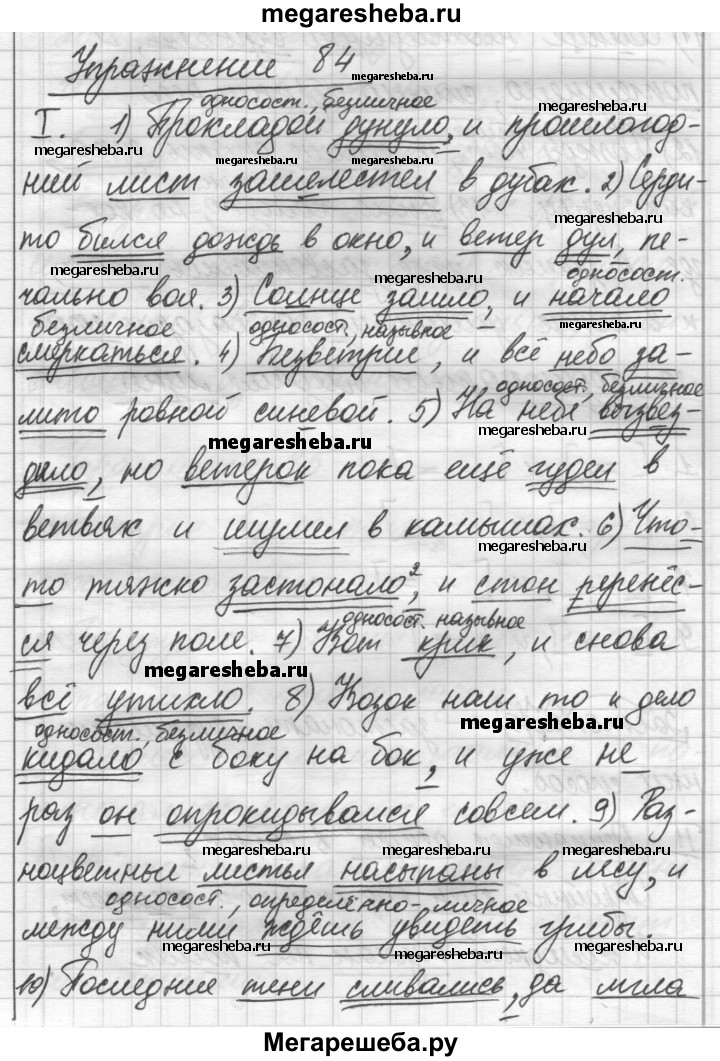 megaresheba.ru
Упражнение 84
megaresheba.ru
односост., безличное
megaresheba.ru
I. 1) Прохладой дунуло, и прошлогод-
megaresheba.ru megaresheba.ru megaresheba.ru
ний лист зашелестел в дубах. 2) Серди-
megaresheba.ru
то бился дождь в окно, и ветер дул, пе-
megaresheba.ru односост.
megaresheba.ru
чально воя. 3) Солнце зашло, и начало
безличное односост., назывное megaresheba.ru
смеркаться. 4) Безветрие, и всё небо за-
односост., безличное
лито ровной синевой. 5) На небе вызвез-
megaresheba.ru megaresheba.ru
дило, но ветерок пока ещё гудел в
ветвях и шумел в камышах. 6) Что-
megaresheba.ru
то тяжко застонало², и стон перенёс-
односост. назывное
ся через поле. 7) Вот крик, и снова
megaresheba.ru
всё утихло. 8) Возок наш то и дело
megaresheba.ru
односост., безличное
кидало с боку на бок, и уже не
раз он опрокидывался совсем. 9) Раз-
megaresheba.ru megaresheba.ru megaresheba.ru
ноцветные листья насыпаны в лесу, и
односост., определённо-личное
между ними ждёшь увидеть грибы.
megaresheba.ru megaresheba.ru megaresheba.ru
10) Последние тени сливались, да мгла
Мегарешеба.ру